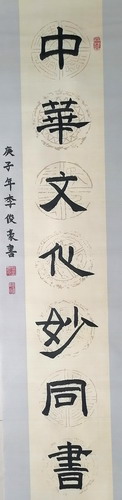 中華文化妙同書
庚子年李俊豪書